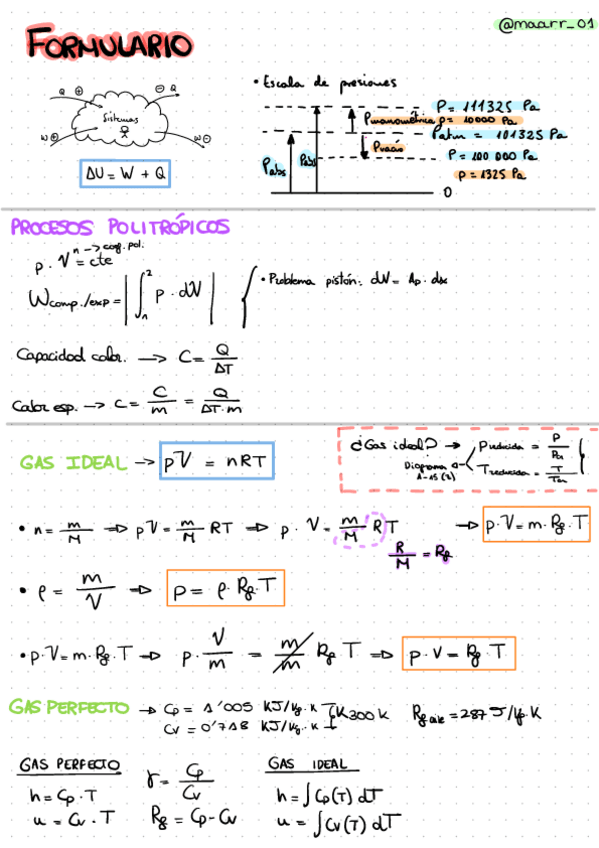 @maarr_01
FORMULARIO
Q ⊕
⊖ Q
Sistemas
W⊕
W⊖
ΔU = W + Q
• Escala de presiones
P = 111325 Pa
Pmanométrica p = 10000 Pa
Patm = 101325 Pa
Pvacío
P = 100 000 Pa
Pabs
Pabs
P = 1325 Pa
0
PROCESOS POLITRÓPICOS
p · Vⁿ = cte
n → coef. pol.
Wcomp./exp = | ∫₁² p · dV |
• Problema pistón: dV = Ap · dx
Capacidad calor. → C = Q / ΔT
Calor esp. → c = C / m = Q / ΔT · m
GAS IDEAL → pV = nRT
¿Gas ideal? → Preducida = P / Pcr
Diagrama A-15 (2)
Treducida = T / Tcr
• n = m / M ⇒ pV = m / M RT ⇒ p · V = m / M RT → p · V = m · Rg · T
R / M = Rg
• ρ = m / V ⇒ p = ρ · Rg · T
• p · V = m · Rg · T → p · V / m = m / m Rg T ⇒ p · v = Rg · T
GAS PERFECTO → Cp = 1'005 KJ/kg·K
Cv = 0'718 KJ/kg·K
300 K
Rg aire = 287 J/kg·K
GAS PERFECTO
h = Cp · T
u = Cv · T
γ = Cp / Cv
Rg = Cp - Cv
GAS IDEAL
h = ∫ Cp(T) dT
u = ∫ Cv(T) dT